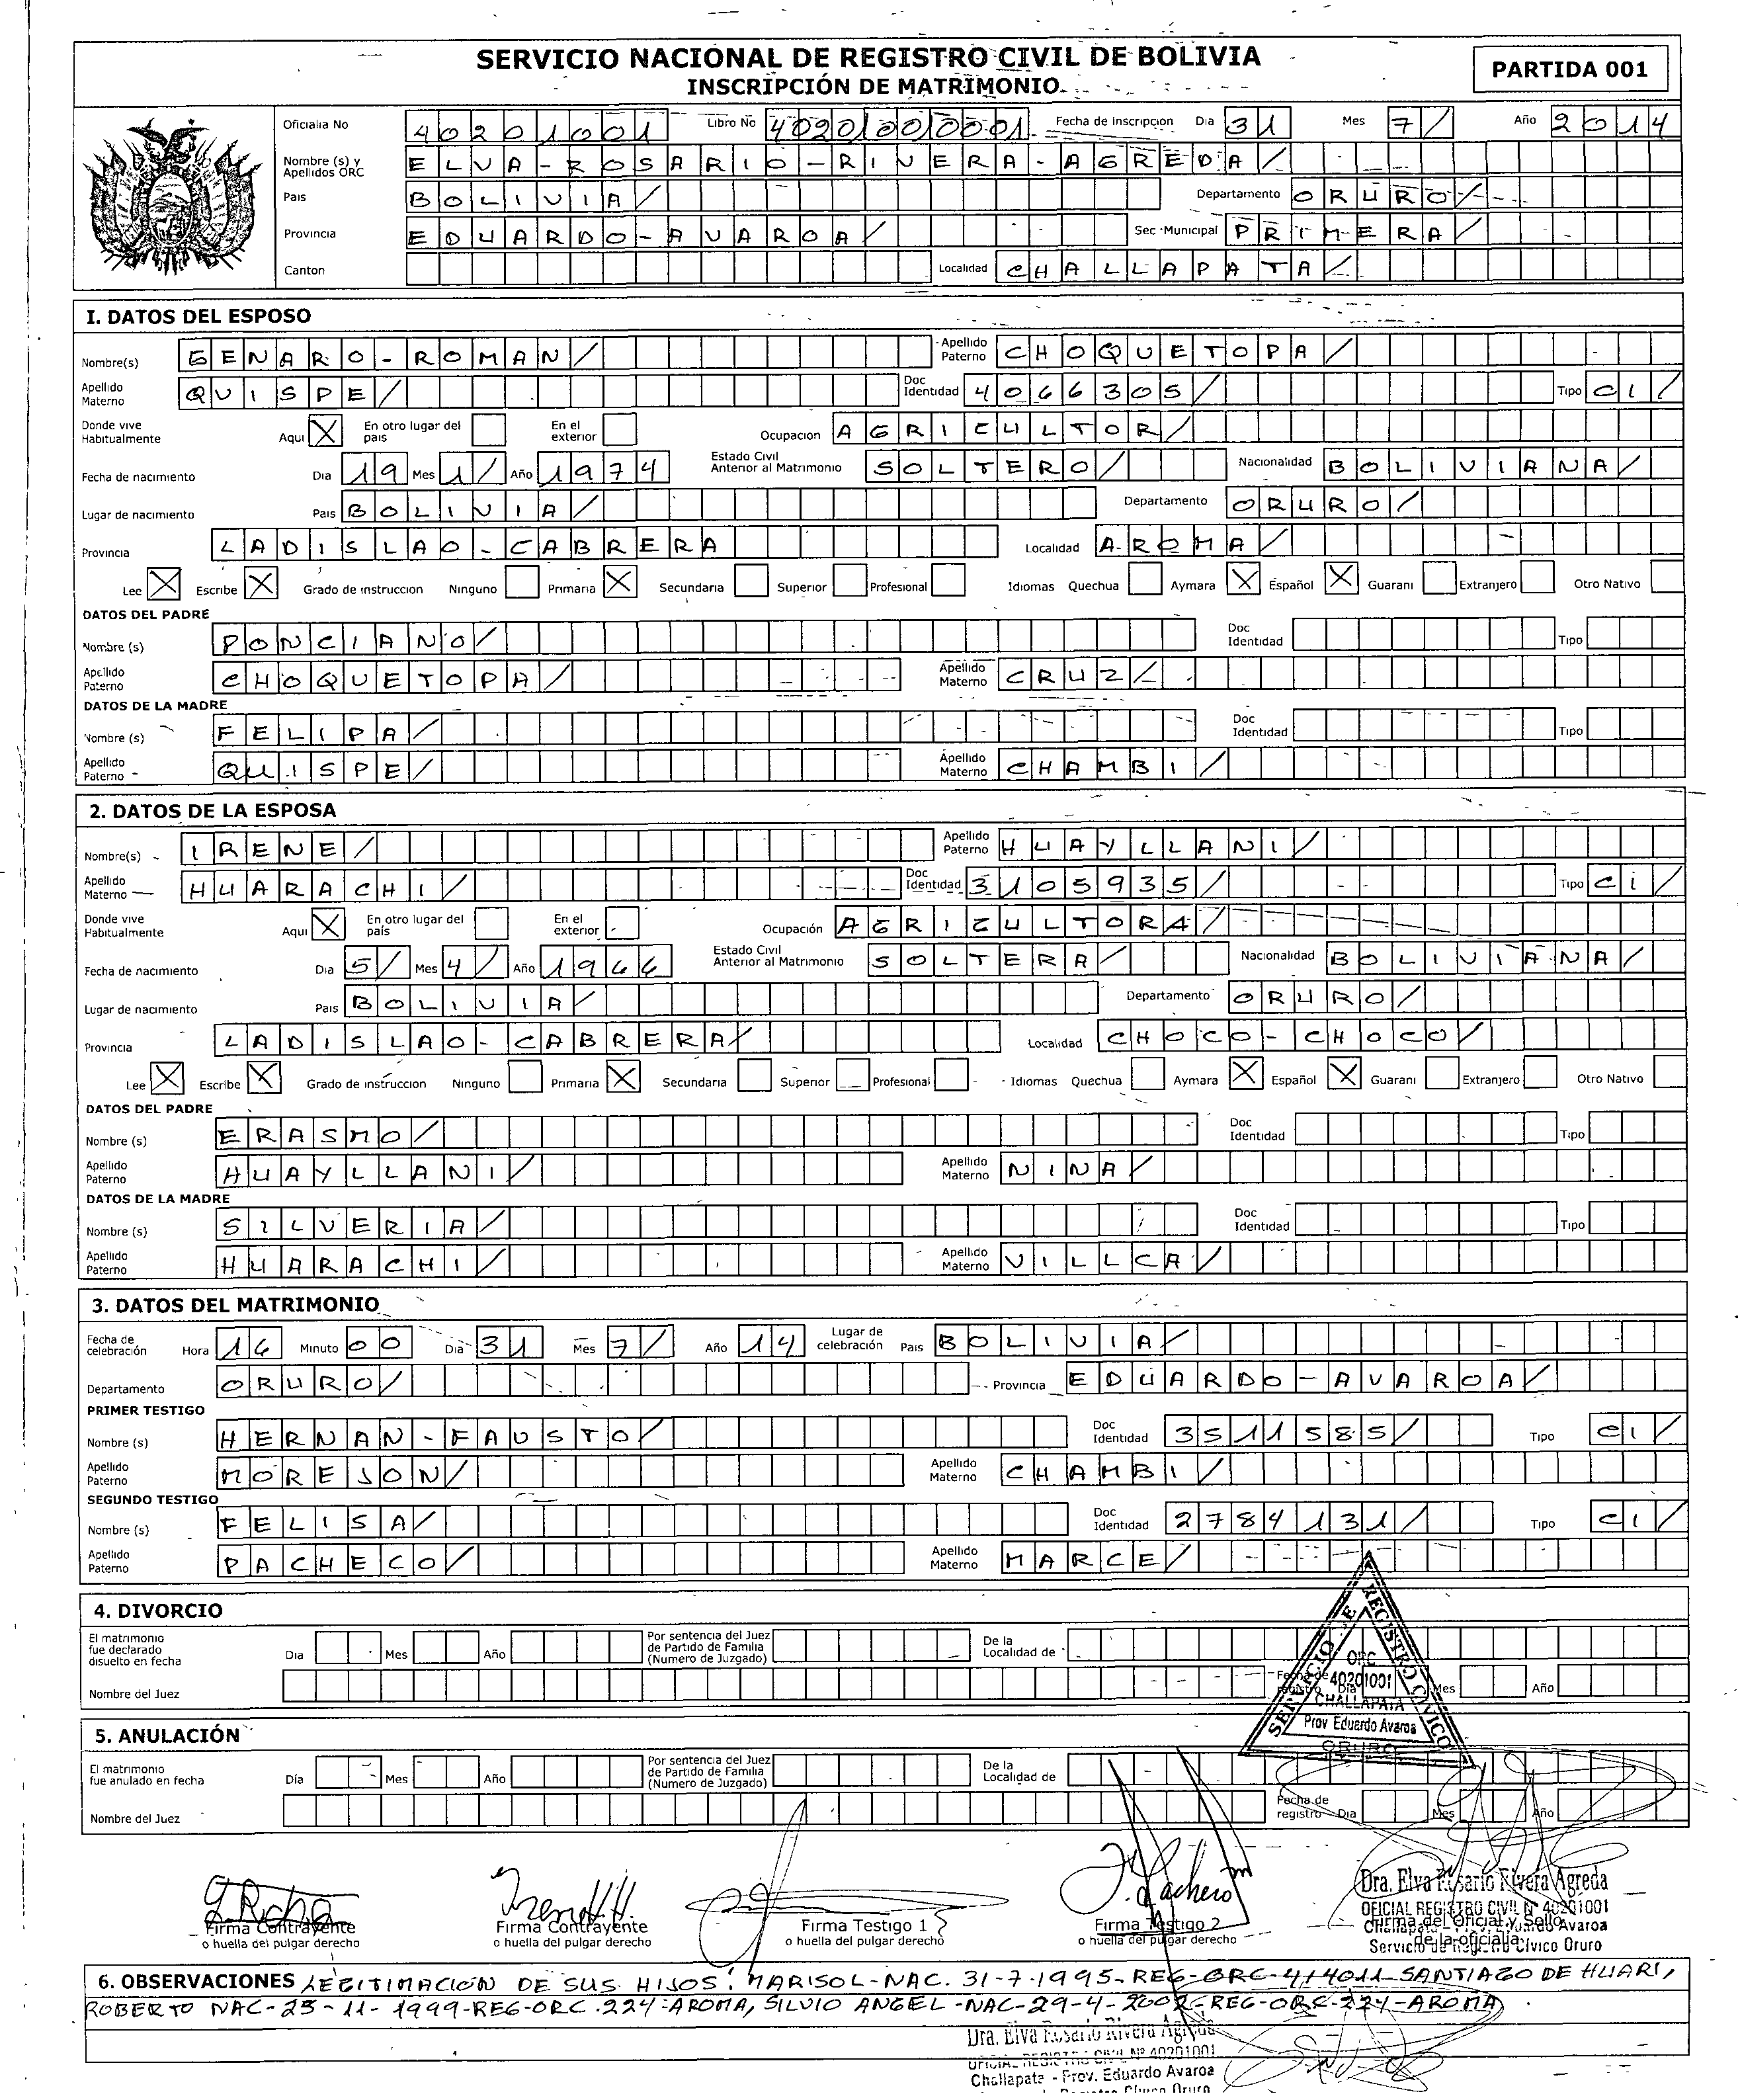 SERVICIO NACIONAL DE REGISTRO CIVIL DE BOLIVIA
INSCRIPCIÓN DE MATRIMONIO
PARTIDA 001
Oficialia No 40201001 Libro No 4020100001 Fecha de inscripcion Dia 31 Mes 7/ Año 2014
Nombre (s) y Apellidos ORC ELVA-ROSARIO-RIVERA-AGREDA/
Pais BOLIVIA/ Departamento ORURO/
Provincia EDUARDO-AVAROA/ Sec Municipal PRIMERA/
Canton Localidad CHALLAPATA/
I. DATOS DEL ESPOSO
Nombre(s) GENARO-ROMAN/ Apellido Paterno CHOQUETOPA/
Apellido Materno QUISPE/ Doc Identidad 4066305/ Tipo CI/
Donde vive Habitualmente Aqui X En otro lugar del pais En el exterior Ocupacion AGRICULTOR/
Fecha de nacimiento Dia 19 Mes 1/ Año 1974 Estado Civil Anterior al Matrimonio SOLTERO/ Nacionalidad BOLIVIANA/
Lugar de nacimiento Pais BOLIVIA/ Departamento ORURO/
Provincia LADISLAO-CABRERA Localidad AROMA/
Lee X Escribe X Grado de instruccion Ninguno Primaria X Secundaria Superior Profesional Idiomas Quechua Aymara X Español X Guarani Extranjero Otro Nativo
DATOS DEL PADRE
Nombre (s) PONCIANO/ Doc Identidad Tipo
Apellido Paterno CHOQUETOPA/ Apellido Materno CRUZ/
DATOS DE LA MADRE
Nombre (s) FELIPA/ Doc Identidad Tipo
Apellido Paterno QUISPE/ Apellido Materno CHAMBI/
2. DATOS DE LA ESPOSA
Nombre(s) IRENE/ Apellido Paterno HUAYLLANI/
Apellido Materno HUARACHI/ Doc Identidad 3105935/ Tipo CI/
Donde vive Habitualmente Aqui X En otro lugar del país En el exterior Ocupación AGRICULTORA/
Fecha de nacimiento Dia 5/ Mes 4/ Año 1966 Estado Civil Anterior al Matrimonio SOLTERA/ Nacionalidad BOLIVIANA/
Lugar de nacimiento Pais BOLIVIA/ Departamento ORURO/
Provincia LADISLAO-CABRERA/ Localidad CHOCO-CHOCO/
Lee X Escribe X Grado de instrucción Ninguno Primaria X Secundaria Superior Profesional Idiomas Quechua Aymara X Español X Guarani Extranjero Otro Nativo
DATOS DEL PADRE
Nombre (s) ERASMO/ Doc Identidad Tipo
Apellido Paterno HUAYLLANI/ Apellido Materno NINA/
DATOS DE LA MADRE
Nombre (s) SILVERIA/ Doc Identidad Tipo
Apellido Paterno HUARACHI/ Apellido Materno VILLCA/
3. DATOS DEL MATRIMONIO
Fecha de celebración Hora 16 Minuto 00 Dia 31 Mes 7/ Año 14 Lugar de celebración Pais BOLIVIA/
Departamento ORURO/ Provincia EDUARDO-AVAROA/
PRIMER TESTIGO
Nombre (s) HERNAN-FAUSTO/ Doc Identidad 3511585/ Tipo CI/
Apellido Paterno MOREJON/ Apellido Materno CHAMBI/
SEGUNDO TESTIGO
Nombre (s) FELISA/ Doc Identidad 2784131/ Tipo CI/
Apellido Paterno PACHECO/ Apellido Materno MARCE/
4. DIVORCIO
El matrimonio fue declarado disuelto en fecha Dia Mes Año Por sentencia del Juez de Partido de Familia (Numero de Juzgado) De la Localidad de
Nombre del Juez Fecha de registro Dia Mes Año
SERVICIO DE REGISTRO CIVICO
ORC
40201001
CHALLAPATA
Prov Eduardo Avaroa
ORURO
5. ANULACIÓN
El matrimonio fue anulado en fecha Día Mes Año Por sentencia del Juez de Partido de Familia (Numero de Juzgado) De la Localidad de
Nombre del Juez Fecha de registro Dia Mes Año
Irene H.H. Pachero
Firma Contrayente Firma Contrayente Firma Testigo 1 Firma Testigo 2 Firma del Oficial y Sello de la oficialia
o huella del pulgar derecho o huella del pulgar derecho o huella del pulgar derecho o huella del pulgar derecho
Dra. Elva Rosario Rivera Agreda
OFICIAL REGISTRO CIVIL Nº 40201001
Challapata - Prov. Eduardo Avaroa
Servicio de Registro Cívico Oruro
6. OBSERVACIONES LEGITIMACION DE SUS HIJOS: MARISOL-NAC. 31-7-1995-REG-ORC-414011-SANTIAGO DE HUARI,
ROBERTO NAC-23-11-1999-REG-ORC.224-AROMA, SILVIO ANGEL-NAC-29-4-2002-REG-ORC-224-AROMA
Dra. Elva Rosario Rivera Agreda
OFICIAL REGISTRO CIVIL Nº 40201001
Challapata - Prov. Eduardo Avaroa
Registro Cívico Oruro